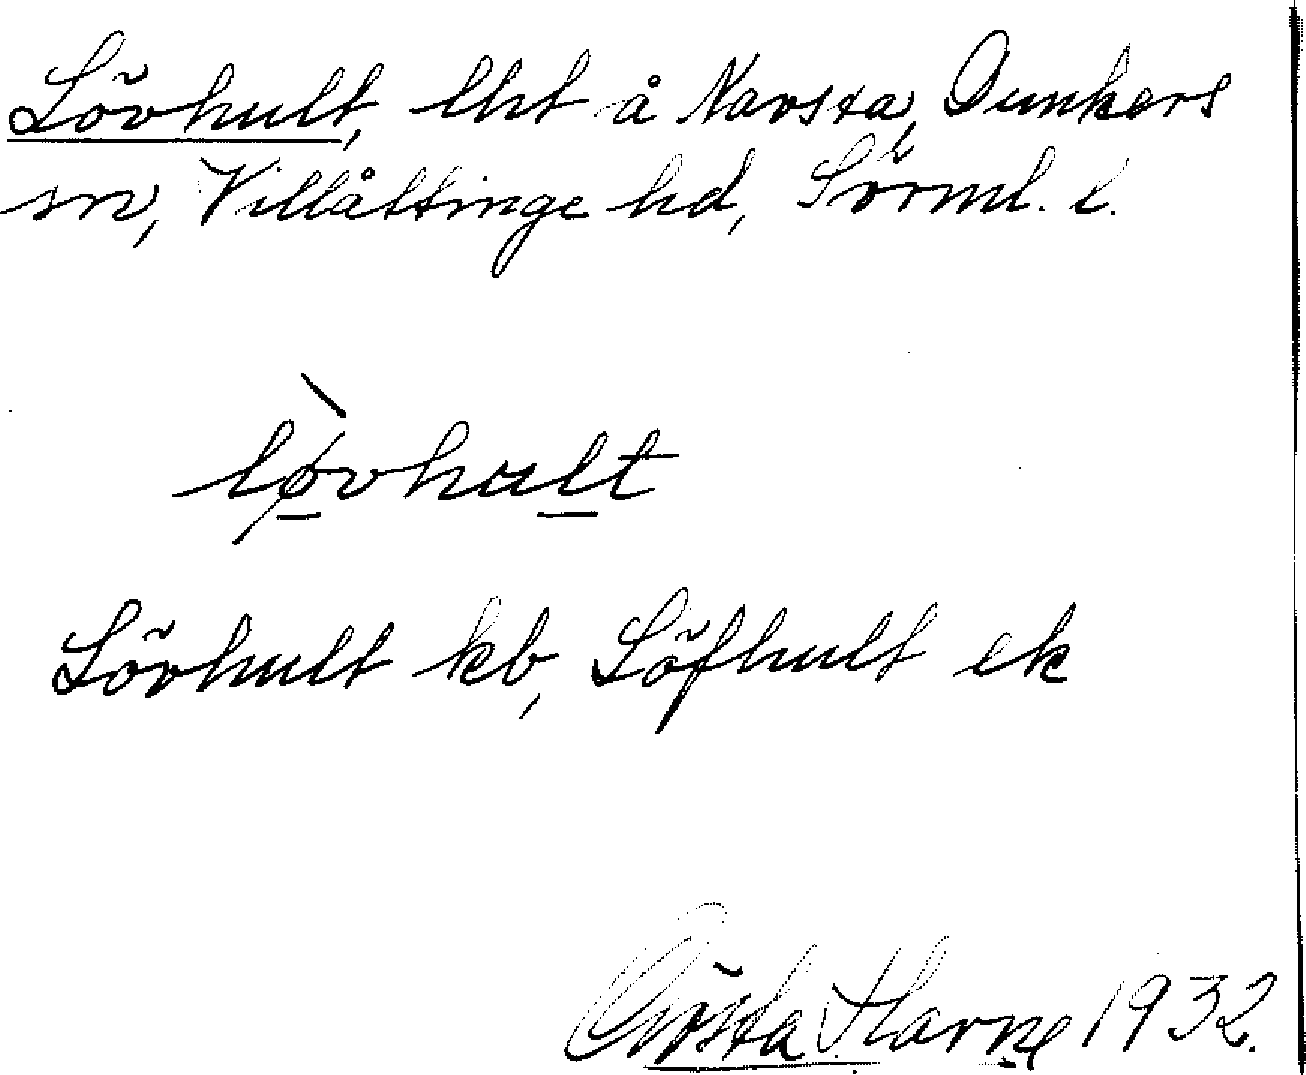 Lövhult, lht å Navsta, Dunkers
sn, Villåttinge hd, Sörml. l.
lø̀vhult
Lövhult kb, Löfhult ek
Gösta Harne 1932.